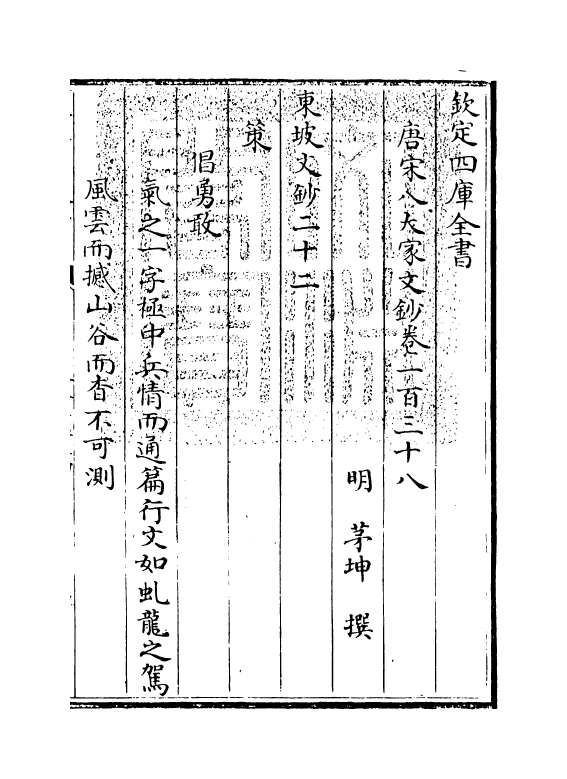 欽定四庫全書
唐宋八大家文鈔卷一百三十八
明 茅坤 撰
東坡文鈔二十二
策
倡勇敢
氣之一字極中兵情而通篇行文如虬龍之駕
風雲而撼山谷而杳不可測